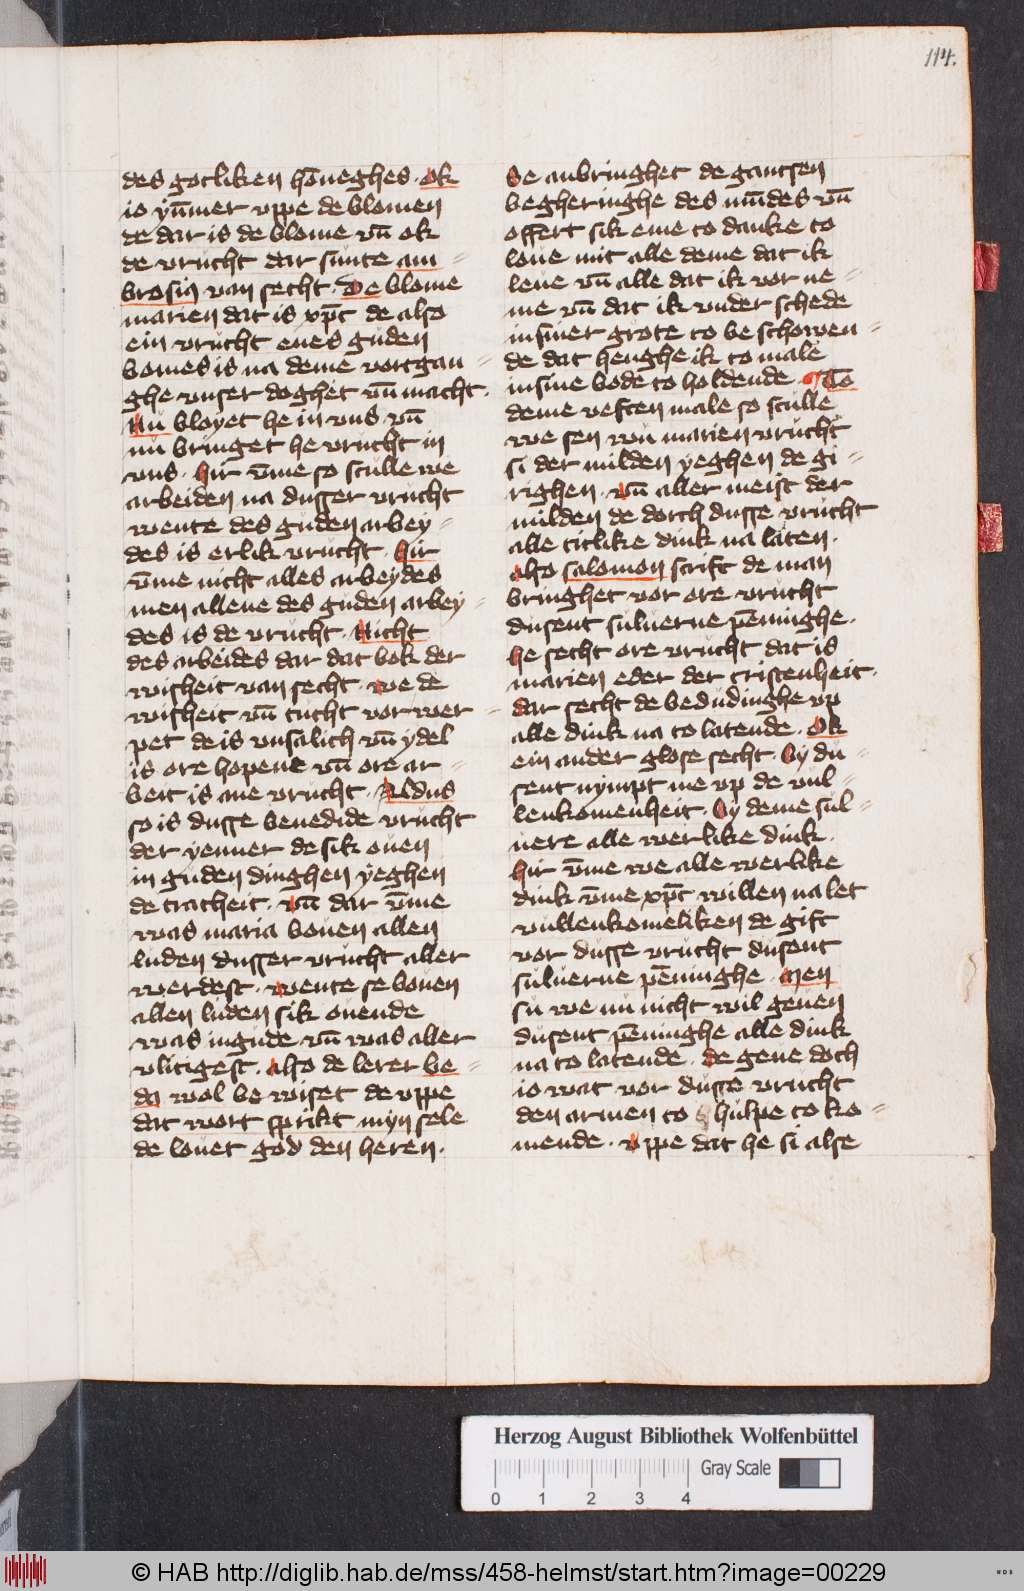 114.
des gotliken hōneghes. Ok
io ẏm̄mer vppe de blomen
de dar is de blome vn̄ ok
de vrucht dar sunte am=
brosiꝰ van secht. De blome
marien dat is xp̄c de also
ein vrucht enes guden
bomes is na deme vortgan=
ghe vnser doghet vn̄ macht.
Nu bloyet he in vns vn̄
nu bringet he vrucht in
vns. Hir vm̄e so sculle we
arbeiden na dusser vrucht
wente des guden arbey=
des is erlik vrucht. Hir
vm̄e nicht alles arbeydes
men allene des guden arbey=
des is de vrucht. Nicht
des arbeides dar dat bok der
wisheit van secht. we de
wisheit vn̄ tucht vor wer=
pet de is vnsalich vn̄ ydel
is ore hopene vn̄ ore ar=
beit is ane vrucht. Aldus
so is dusse benedide vrucht
der yenner de sik ouen
in guden dinghen yeghen
de tracheit. vn̄ dar vm̄e
was maria bouen allen
luden dusser vrucht aller
werdest. wente se bouen
allen luden sik ouende
was in gude vn̄ was aller
vlitigest. also de lerer be=
da wol be wiset de vppe
dat wort sprikt myn sele
de louet god den heren.
Se anbringhet de gantsen
begheringhe des mūdes vn̄
offert sik eme to danke to
loue mit alle deme dat ik
leue vn̄ alle dat ik vor ne=
me vn̄ dat ik vnder schede
in siner grote to be schowen=
de dat henghe ik to male
in sine bode to holdende. To
deme vesten male so sculle
we sen wu marien vrucht
si der milden yeghen de gi=
righen. vn̄ aller meist der
milden de dorch dusse vrucht
alle titlike dink na laten.
also salomon scrift de man
bringhet vor ore vrucht
dusent suluerne pēninghe.
he secht ore vrucht dat is
marien eder der cristenheit.
dar secht de bedudinghe vp
alle dink na to latende. Ok
ein ander glose secht. By du=
sent nympt me vp de vul=
lenkomenheit. By deme sul=
uere alle werlike dink.
Hir vm̄e we alle werlike
dink vm̄e xp̄c willen na let
vullenkomeliken de gift
vor dusse vrucht dusent
suluerne pēninghe. Men
su we nu nicht wil geuen
dusent pēninghe alle dink
na to latende. De geue doch
io wat vor dusse vrucht
den armen to hulpe to ko=
mende. vppe dat he si alse
Herzog August Bibliothek Wolfenbüttel
Gray Scale
0 1 2 3 4
© HAB http://diglib.hab.de/mss/458-helmst/start.htm?image=00229